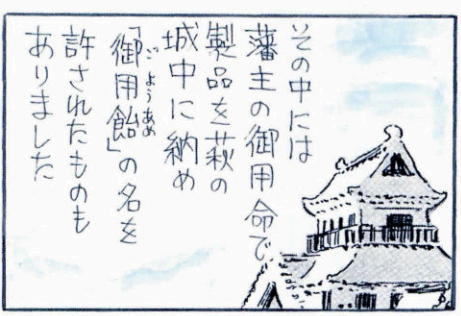 その中には
藩主の御用命で
製品を萩の
城中に納め
「御用飴」の名を
ごようあめ
許されたものも
ありました